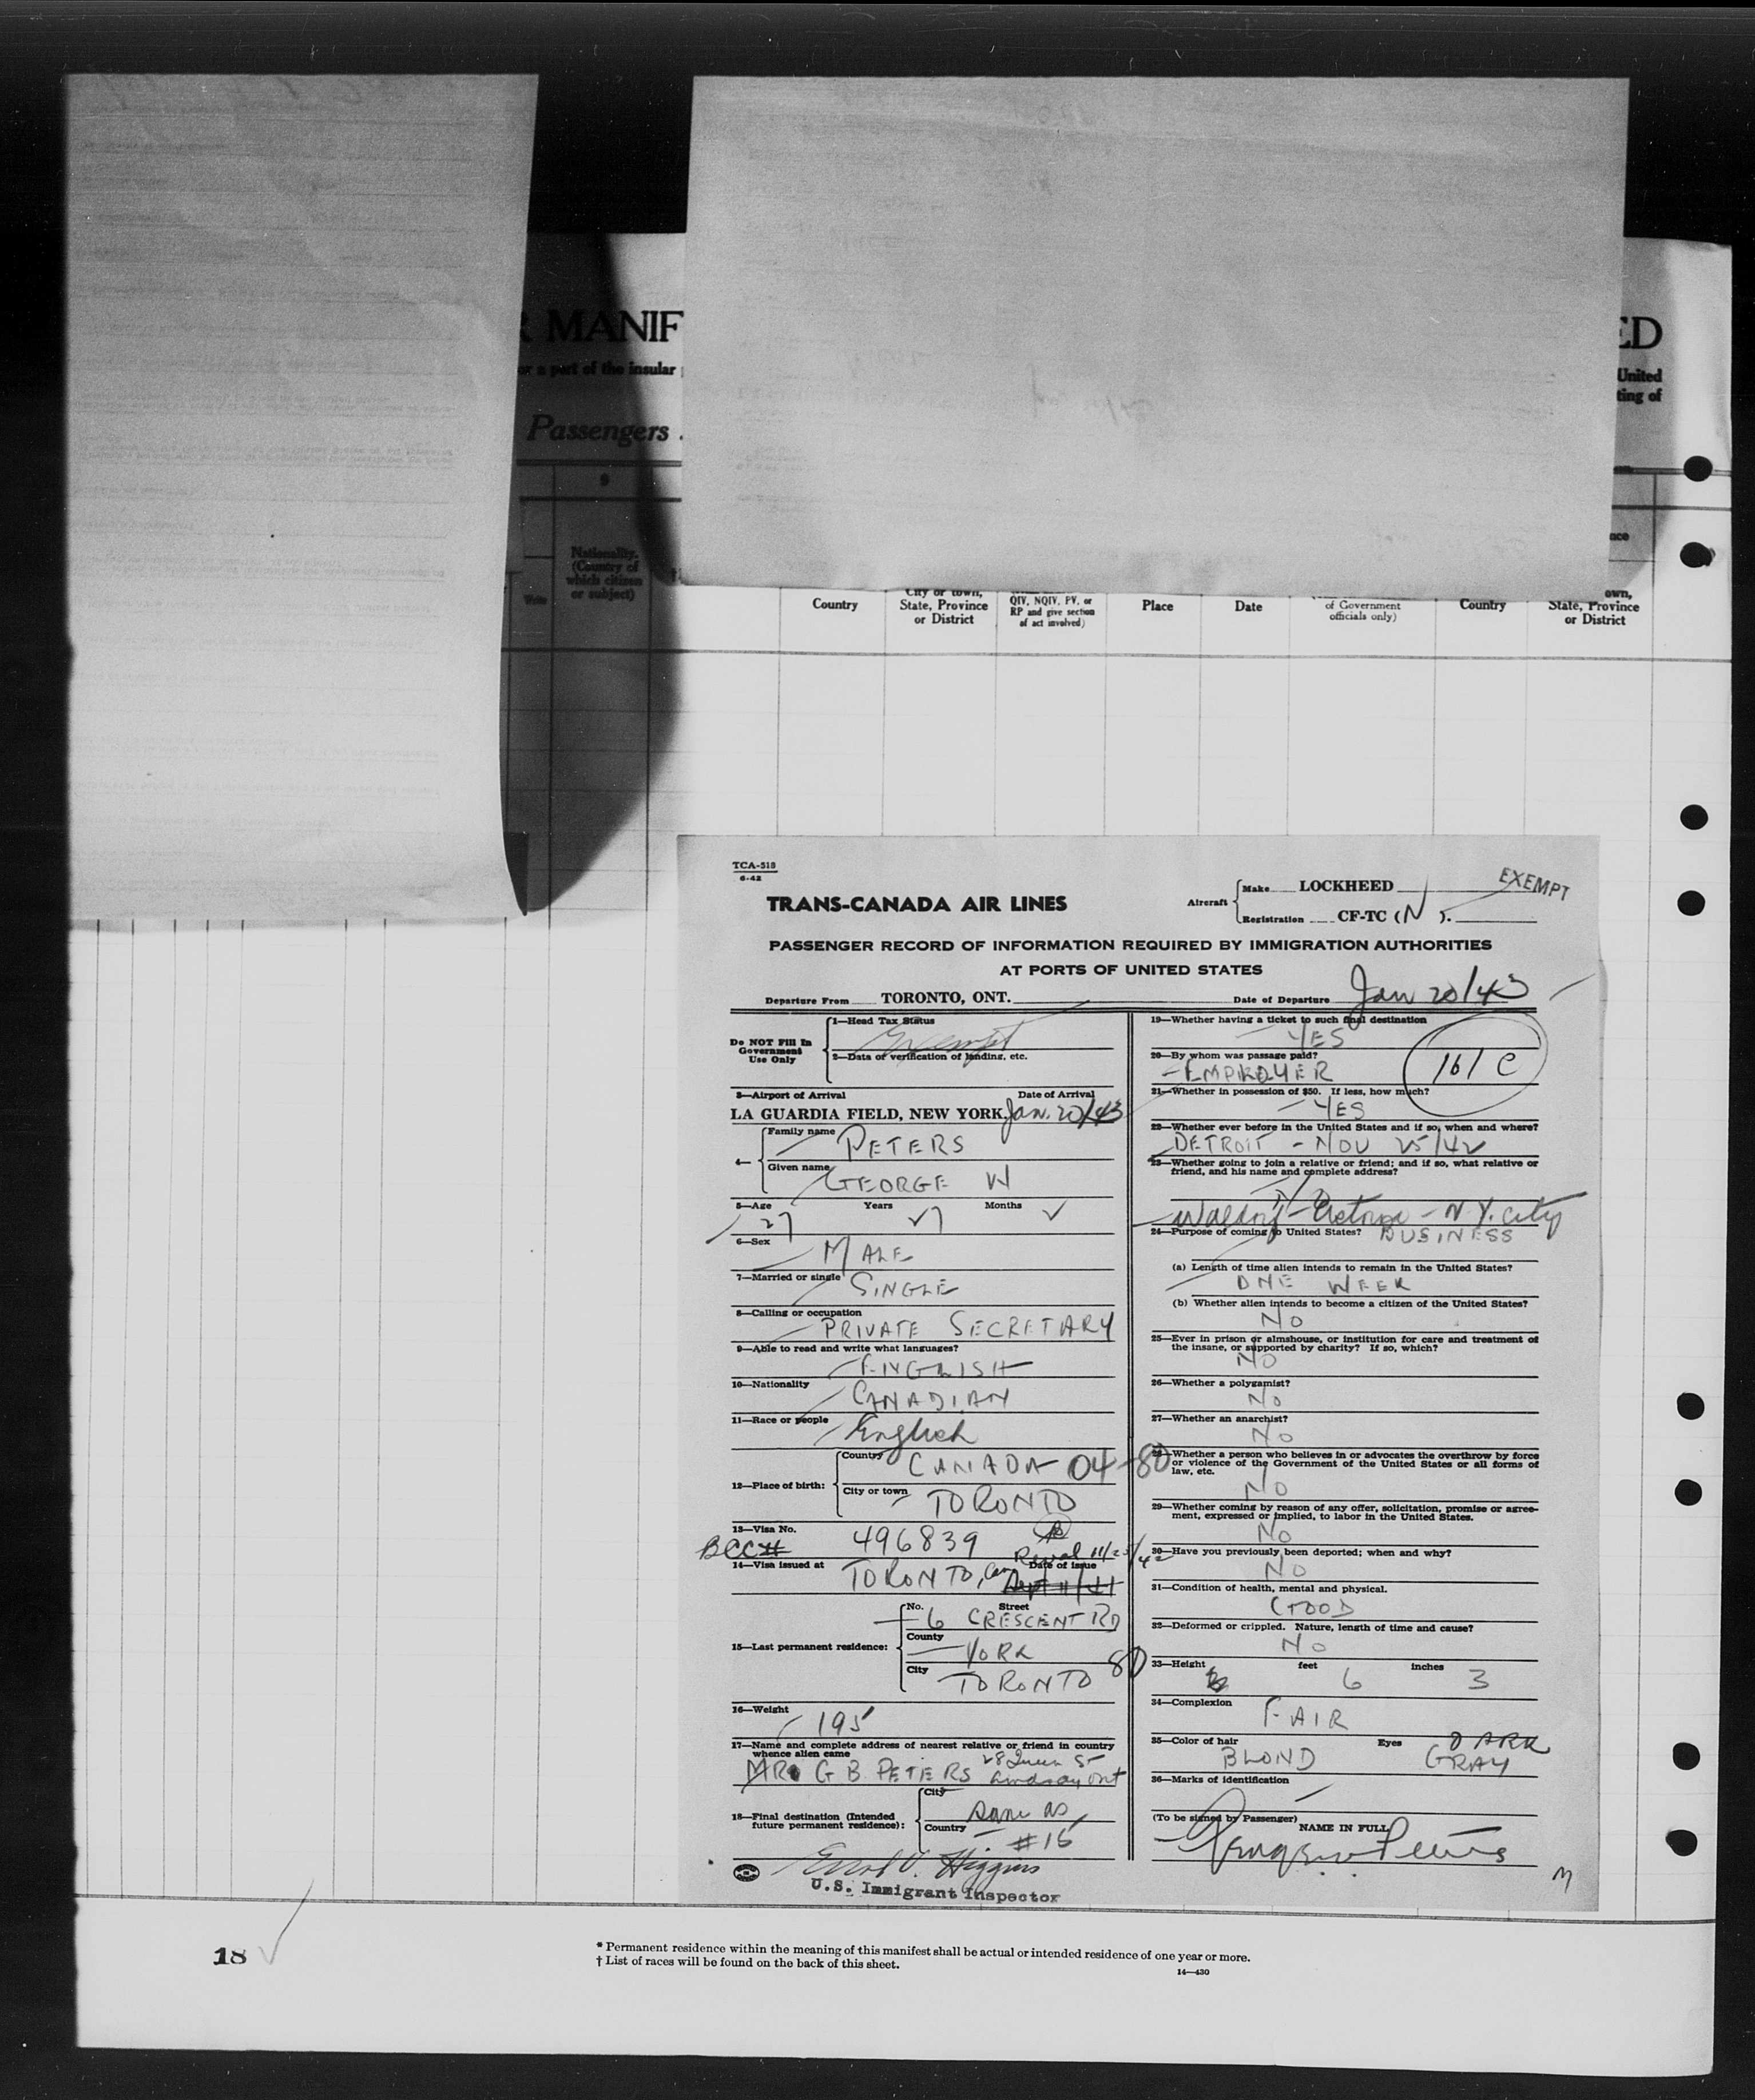 MANIF
ED
or a part of the insular
United
ting of
Passengers
9
Nationality.
(Country of
which citizen
or subject)
Write
Country
City or town,
State, Province
or District
QIV, NQIV, PV, or
RP and give section
of act involved)
Place
Date
of Government
officials only)
Country
own,
State, Province
or District
TCA-518
6-42
TRANS-CANADA AIR LINES
Aircraft
Make LOCKHEED
Registration CF-TC (N).
EXEMPT
PASSENGER RECORD OF INFORMATION REQUIRED BY IMMIGRATION AUTHORITIES
AT PORTS OF UNITED STATES
Departure From TORONTO, ONT. Date of Departure Jan 20/43
Do NOT Fill In
Government
Use Only
1—Head Tax Status
Exempt
2—Data of verification of landing, etc.
3—Airport of Arrival Date of Arrival
LA GUARDIA FIELD, NEW YORK. Jan. 20/43
4— Family name PETERS
Given name GEORGE W
5—Age Years Months
27
6—Sex MALE
7—Married or single SINGLE
8—Calling or occupation
PRIVATE SECRETARY
9—Able to read and write what languages?
ENGLISH
10—Nationality CANADIAN
11—Race or people English
12—Place of birth:
Country CANADA 04-80
City or town TORONTO
13—Visa No. 496839
BCC#
14—Visa issued at TORONTO, Can Date of issue
Sept 11/41
15—Last permanent residence:
No. Street
6 CRESCENT RD
County
YORK
City TORONTO 80
16—Weight 195
17—Name and complete address of nearest relative or friend in country
whence alien came
MR G B PETERS 28 Queen St
Lindsay Ont
18—Final destination (Intended
future permanent residence):
City Same as
Country #15
U.S. Immigrant Inspector
19—Whether having a ticket to such final destination
YES
20—By whom was passage paid?
EMPLOYER
161 C
21—Whether in possession of $50. If less, how much?
YES
22—Whether ever before in the United States and if so, when and where?
DETROIT - NOV 25/42
23—Whether going to join a relative or friend; and if so, what relative or
friend, and his name and complete address?
Waldorf-Astoria - N.Y. City
24—Purpose of coming to United States? BUSINESS
(a) Length of time alien intends to remain in the United States?
ONE WEEK
(b) Whether alien intends to become a citizen of the United States?
NO
25—Ever in prison or almshouse, or institution for care and treatment of
the insane, or supported by charity? If so, which?
NO
26—Whether a polygamist?
NO
27—Whether an anarchist?
NO
28—Whether a person who believes in or advocates the overthrow by force
or violence of the Government of the United States or all forms of
law, etc.
NO
29—Whether coming by reason of any offer, solicitation, promise or agree-
ment, expressed or implied, to labor in the United States.
NO
30—Have you previously been deported; when and why?
NO
31—Condition of health, mental and physical.
GOOD
32—Deformed or crippled. Nature, length of time and cause?
NO
33—Height feet inches
6 3
34—Complexion
FAIR
35—Color of hair Eyes DARK
BLOND GRAY
36—Marks of identification
(To be signed by Passenger)
NAME IN FULL
George W Peters
18
* Permanent residence within the meaning of this manifest shall be actual or intended residence of one year or more.
† List of races will be found on the back of this sheet.
14—430